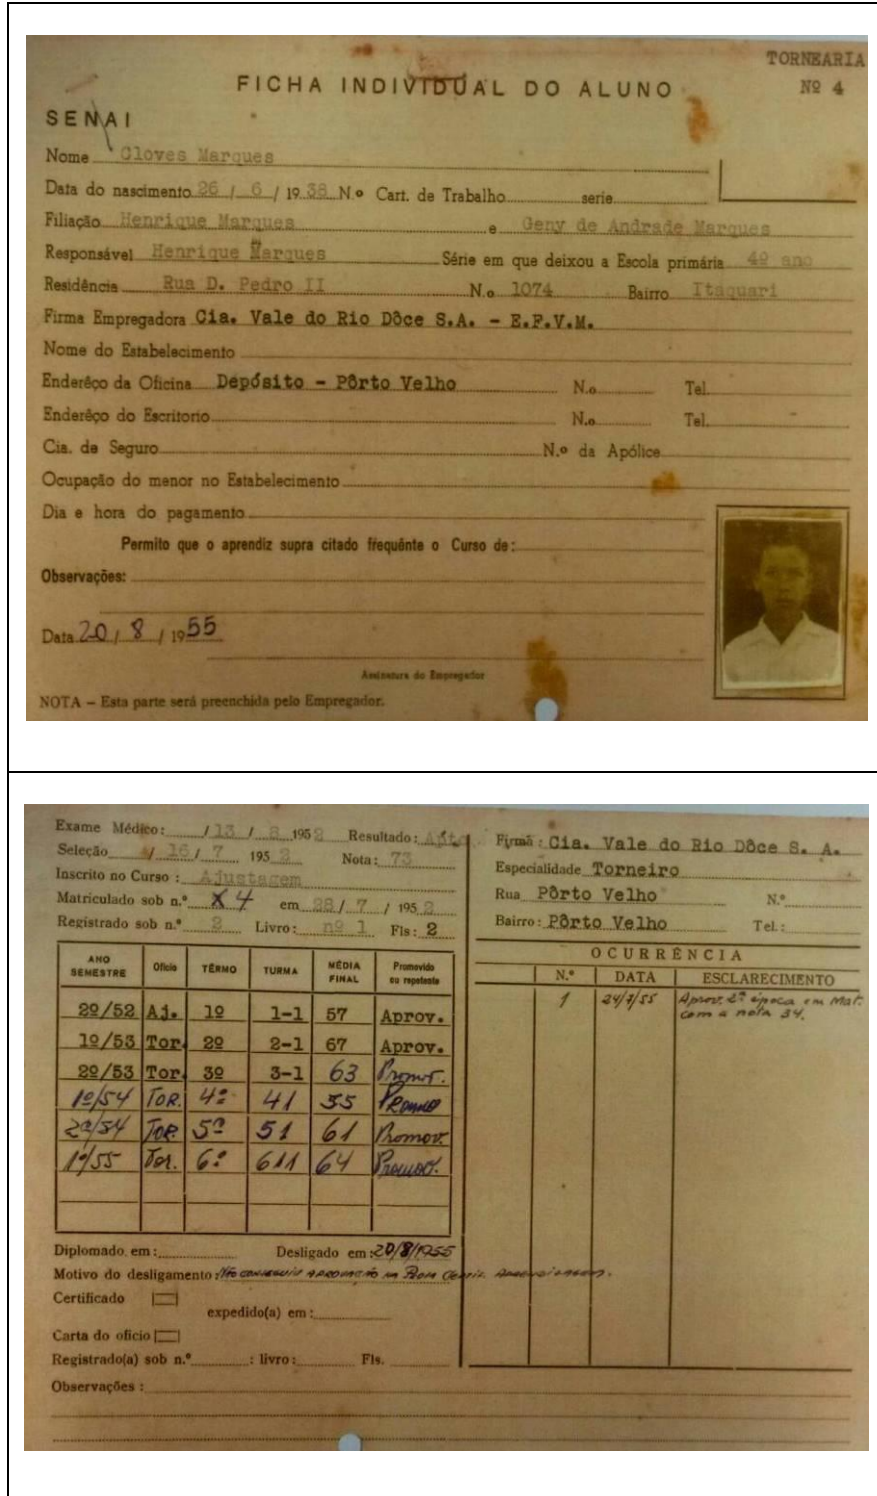 TORNEARIA
FICHA INDIVIDUAL DO ALUNO Nº 4
SENAI
Nome Cloves Marques
Data do nascimento 26 / 6 / 19 38 N.º Cart. de Trabalho serie
Filiação Henrique Marques e Geny de Andrade Marques
Responsável Henrique Marques Série em que deixou a Escola primária 4º ano
Residência Rua D. Pedro II N.º 1074 Bairro Itaquari
Firma Empregadora Cia. Vale do Rio Dôce S.A. - E.F.V.M.
Nome do Estabelecimento
Enderêço da Oficina Depósito - Pôrto Velho N.º Tel.
Enderêço do Escritorio N.º Tel.
Cia. de Seguro N.º da Apólice
Ocupação do menor no Estabelecimento
Dia e hora do pagamento
Permito que o aprendiz supra citado frequênte o Curso de:
Observações:
Data 20 / 8 / 19 55
Assinatura do Empregador
NOTA – Esta parte será preenchida pelo Empregador.
Exame Médico: / 13 / 8 195 2 Resultado: Apto
Seleção / 16 / 7 195 2 Nota: 73
Inscrito no Curso: Ajustagem
Matriculado sob n.º X 4 em 28 / 7 / 195 2
Registrado sob n.º 2 Livro: nº 1 Fls: 2
ANO SEMESTRE Ofício TÊRMO TURMA MÉDIA FINAL Promovido ou repetente
2º/52 Aj. 1º 1-1 57 Aprov.
1º/53 Tor. 2º 2-1 67 Aprov.
2º/53 Tor. 3º 3-1 63 Promov.
1º/54 TOR. 4º 41 55 Promov
2º/54 TOR. 5º 51 61 Promov.
1º/55 Tor. 6º 611 64 Promov.
Diplomado em: Desligado em: 20/8/1955
Motivo do desligamento: Não conseguiu aprovação na Aprendizagem.
Certificado
expedido(a) em:
Carta do ofício
Registrado(a) sob n.º : livro: Fls.
Observações:
Firma: Cia. Vale do Rio Dôce S. A.
Especialidade Torneiro
Rua Pôrto Velho N.º
Bairro: Pôrto Velho Tel.:
OCURRÊNCIA
N.º DATA ESCLARECIMENTO
1 24/7/55 Aprov. 2ª época em Mat.
com a nota 54.